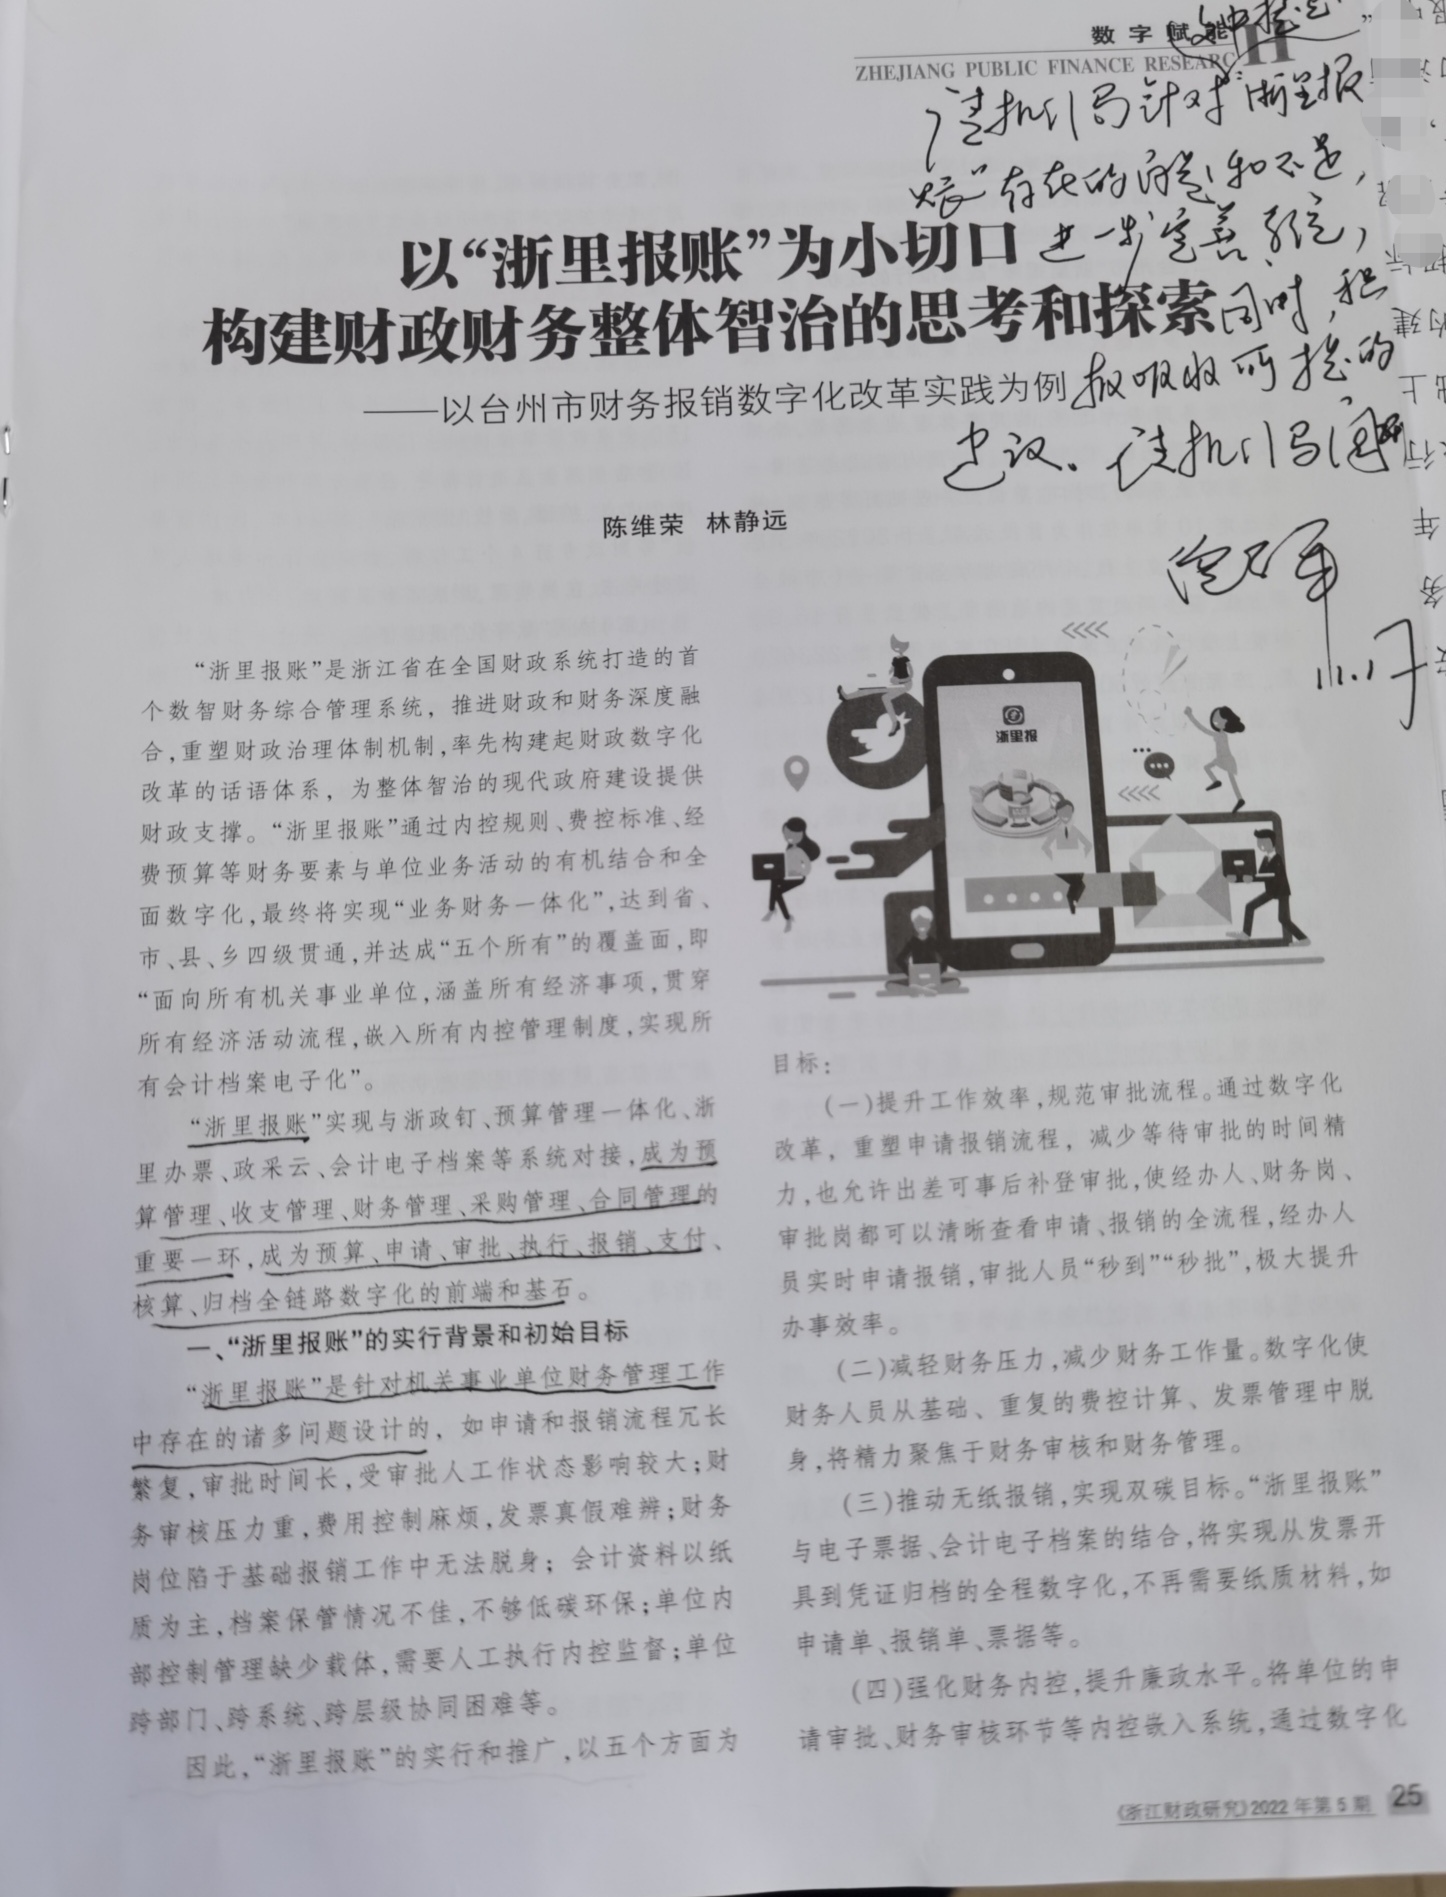 数字赋能
ZHEJIANG PUBLIC FINANCE RESEARCH
文中提出
请机门局针对“浙里报
账”存在的问题和不足，
进一步完善
同时，积
极吸收所提的
建议。请机门局阅
11.17
以“浙里报账”为小切口
构建财政财务整体智治的思考和探索
——以台州市财务报销数字化改革实践为例
陈维荣 林静远
“浙里报账”是浙江省在全国财政系统打造的首
个数智财务综合管理系统，推进财政和财务深度融
合，重塑财政治理体制机制，率先构建起财政数字化
改革的话语体系，为整体智治的现代政府建设提供
财政支撑。“浙里报账”通过内控规则、费控标准、经
费预算等财务要素与单位业务活动的有机结合和全
面数字化，最终将实现“业务财务一体化”，达到省、
市、县、乡四级贯通，并达成“五个所有”的覆盖面，即
“面向所有机关事业单位，涵盖所有经济事项，贯穿
所有经济活动流程，嵌入所有内控管理制度，实现所
有会计档案电子化”。
“浙里报账”实现与浙政钉、预算管理一体化、浙
里办票、政采云、会计电子档案等系统对接，成为预
算管理、收支管理、财务管理、采购管理、合同管理的
重要一环，成为预算、申请、审批、执行、报销、支付、
核算、归档全链路数字化的前端和基石。
一、“浙里报账”的实行背景和初始目标
“浙里报账”是针对机关事业单位财务管理工作
中存在的诸多问题设计的，如申请和报销流程冗长
繁复，审批时间长，受审批人工作状态影响较大；财
务审核压力重，费用控制麻烦，发票真假难辨；财务
岗位陷于基础报销工作中无法脱身；会计资料以纸
质为主，档案保管情况不佳，不够低碳环保；单位内
部控制管理缺少载体，需要人工执行内控监督；单位
跨部门、跨系统、跨层级协同困难等。
因此，“浙里报账”的实行和推广，以五个方面为
浙里报
目标：
（一）提升工作效率，规范审批流程。通过数字化
改革，重塑申请报销流程，减少等待审批的时间精
力，也允许出差可事后补登审批，使经办人、财务岗、
审批岗都可以清晰查看申请、报销的全流程，经办人
员实时申请报销，审批人员“秒到”“秒批”，极大提升
办事效率。
（二）减轻财务压力，减少财务工作量。数字化使
财务人员从基础、重复的费控计算、发票管理中脱
身，将精力聚焦于财务审核和财务管理。
（三）推动无纸报销，实现双碳目标。“浙里报账”
与电子票据、会计电子档案的结合，将实现从发票开
具到凭证归档的全程数字化，不再需要纸质材料，如
申请单、报销单、票据等。
（四）强化财务内控，提升廉政水平。将单位的申
请审批、财务审核环节等内控嵌入系统，通过数字化
《浙江财政研究》2022年第5期 25